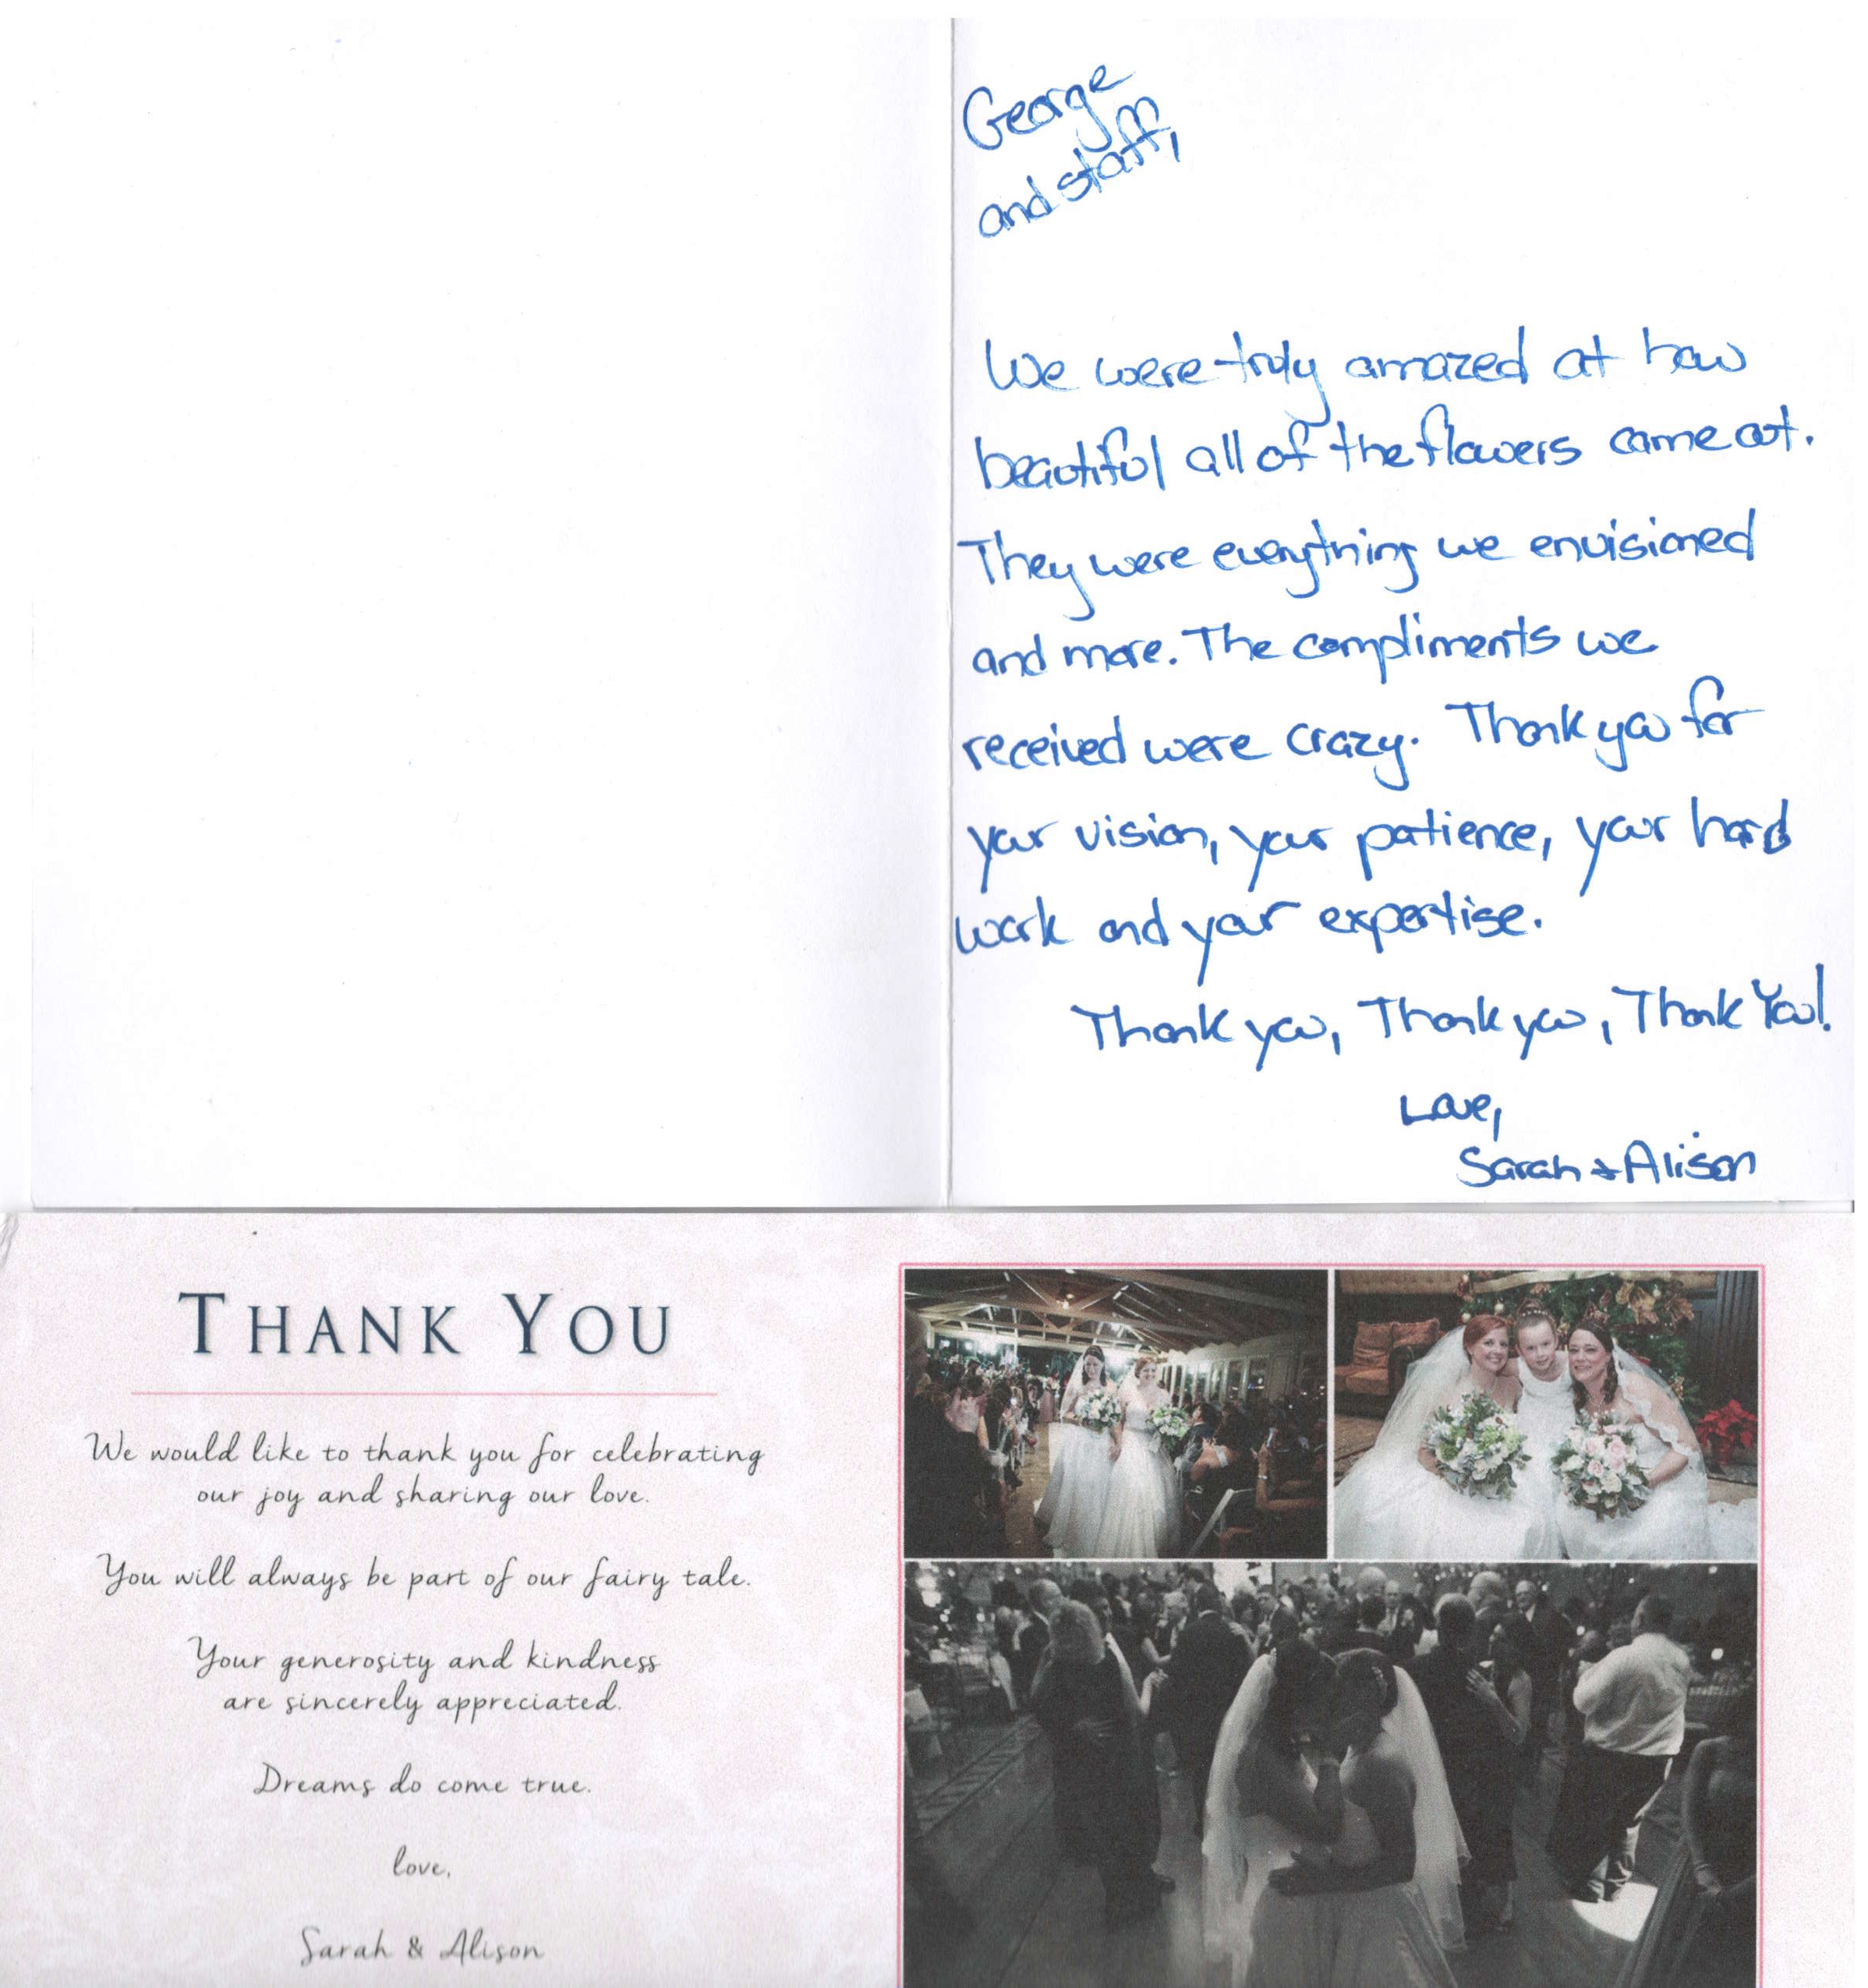 George
and staff,
We were truly amazed at how
beautiful all of the flowers came out.
They were everything we envisioned
and more. The compliments we
received were crazy. Thank you for
your vision, your patience, your hard
work and your expertise.
Thank you, Thank you, Thank You!
Love,
Sarah & Alison
THANK YOU
We would like to thank you for celebrating
our joy and sharing our love.
You will always be part of our fairy tale.
Your generosity and kindness
are sincerely appreciated.
Dreams do come true.
love,
Sarah & Alison